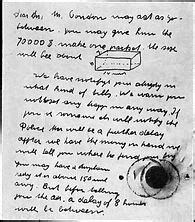 Dear Sir: Mr. Condon may act as go-
between. You may give him the
70000 $ make one packet. the size
will bee about
14 inch
We have notifyt you allredy in
what kind of bills. We warn you
not to set any trapp in any way. If
you or someone els will notify the
Police ther will be a further delay
affter we have the mony in hand we
will tell you where to find your boy
You may have a airplane
redy it is about 150 mil
awy. But befor telling
you the adr. a delay of 8 houers
will be between.